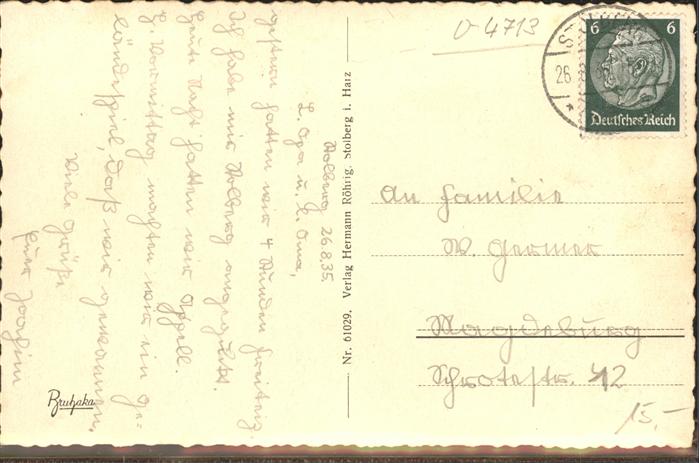 Stolberg 26.8.35
L. Opa u. l. Oma,
gestern hatten wir 4 Stunden Freizeit.
Ich habe mir Stolberg angeguckt.
Heute Nacht hatten wir Appell.
Vormittag machten wir ein Ge-
ländespiel, daß wir gewannen.
Viele Grüße
Euer Joachim
Bruhaka
Nr. 61029. Verlag Hermann Röhrig, Stolberg i. Harz
V-4713
26
6 6
Deutsches Reich
An Familie
W. Germer
Magdeburg
Schrotestr. 42
15,-